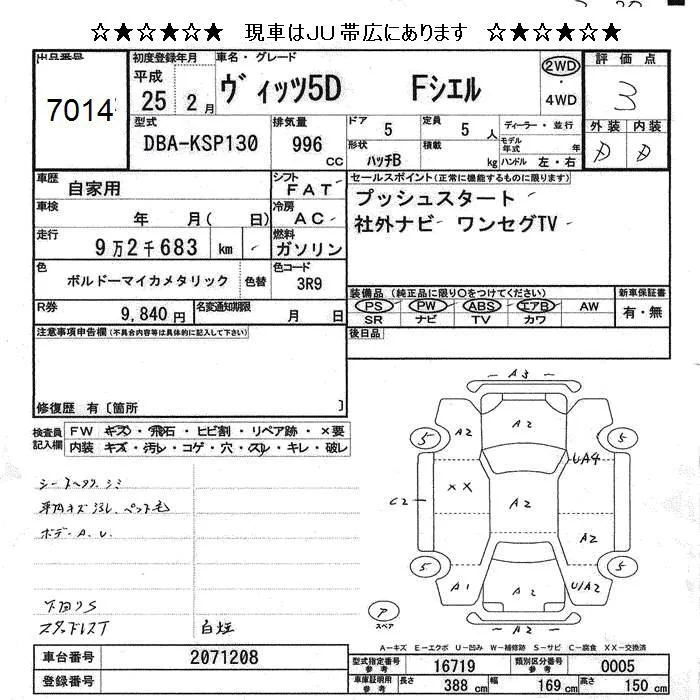 ☆★☆★☆★ 現車はJU帯広にあります ☆★☆★☆★
出品番号 初度登録年月 車名・グレード 評価点
7014 平成 25 2月 ヴィッツ5D Fシエル 2WD ・ 4WD 3
型式 排気量 ドア 5 定員 5人 ディーラー・並行 外装 内装
DBA-KSP130 996 cc 形状 ハッチB 積載 kg モデル年式 年 ハンドル 左・右 D D
車歴 自家用 シフト FAT セールスポイント(正常に機能するものに限ります)
車検 年 月( 日) 冷房 AC プッシュスタート
走行 9万2千683 km 燃料 ガソリン 社外ナビ ワンセグTV
色 ボルドーマイカメタリック 色替 色コード 3R9
装備品(純正品に限り○をつけてください) 新車保証書
R券 9,840円 名変通知期限 月 日 PS PW ABS エアB AW 有・無
SR ナビ TV カワ
注意事項申告欄(不具合内容等は具体的に記入して下さい) 後日品
修復歴 有〔箇所 〕
検査員記入欄 FW キズ・飛石・ヒビ割・リペア跡・×要
内装 キズ・汚レ・コゲ・穴・スレ・キレ・破レ
A3
5 A2 A2 5
UA4
シートヘタリ シミ
XX A2
C2
内キズ汚レ、ペット毛
ボデーA.U.
A2
5 A1 A2 U/A2 5
下回りS
スタッドレスT 白煙
ア スペア A2
A-キズ E-エクボ U-凹み W-補修跡 S-サビ C-腐食 XX-交換済
車台番号 2071208 型式指定番号 参考 16719 類別区分番号 参考 0005
登録番号 車庫証明用 参考 長さ 388 cm 幅 169 cm 高さ 150 cm